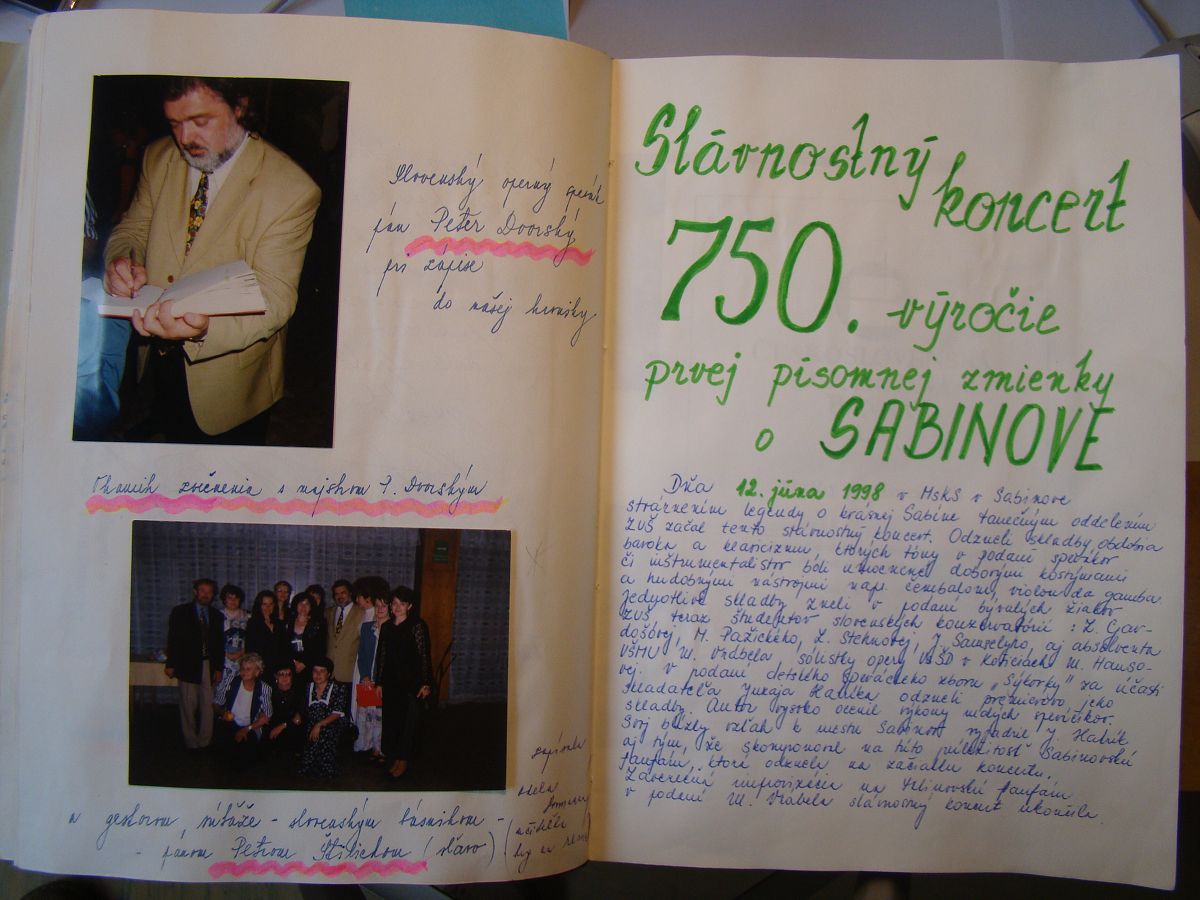 Slovenský operný spevák
pán Peter Dvorský
pri zápise
do našej kroniky
Okamih zvečnenia s majstrom P. Dvorským
a gestorom súťaže - slovenským básnikom -
- pánom Petrom Štilichom (vľavo)
Slávnostný
koncert
750. výročie
prvej písomnej zmienky
o SABINOVE
Dňa 12. júna 1998 v MsKS v Sabinove
stvárnením legendy o krásnej Sabíne tanečným oddelením
ZUŠ začal tento slávnostný koncert. Odzneli skladby obdobia
baroka a klasicizmu, ktorých tóny v podaní spevákov
či inštrumentalistov boli umocnené dobovými kostýmami
a hudobnými nástrojmi napr. čembalom, violou da gamba.
Jedyotlivé skladby zneli v podaní bývalých žiakov
ZUŠ, teraz študentov slovenských konzervatórií : Z. Gar-
došovej, M. Pažického, Z. Stehnovej, J. Samselyho, aj absolventa
VŠMU M. Vrábela sólistky opery v Košiciach M. Hauso-
vej. V podaní detského speváckeho zboru „Sýkorky" za účasti
skladateľa Juraja Hatríka odzneli premiérovo jeho
skladby. Autor vysoko ocenil výkony mladých speváčikov.
Svoj blízky vzťah k mestu Sabinov vyjadril J. Hatrík
aj tým, že skomponoval na túto príležitosť Sabinovskú
fanfáru, ktorá odznela na začiatku koncertu.
Záverečná improvizácia na fanfáru
v podaní M. Vrábela slávnostný koncert ukončila.